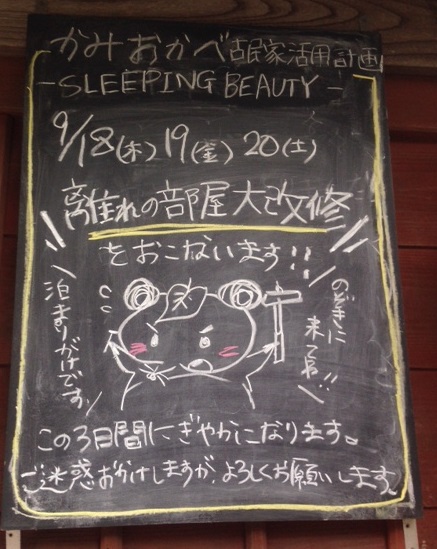 かみおかべ古民家活用計画
-SLEEPING BEAUTY-
9/18(木)19(金)20(土)
離れの部屋大改修
をおこないます!!
泊まりがけです
のぞきに
来てね!!
この3日間にぎやかになります。
ご迷惑おかけしますが、よろしくお願いします。